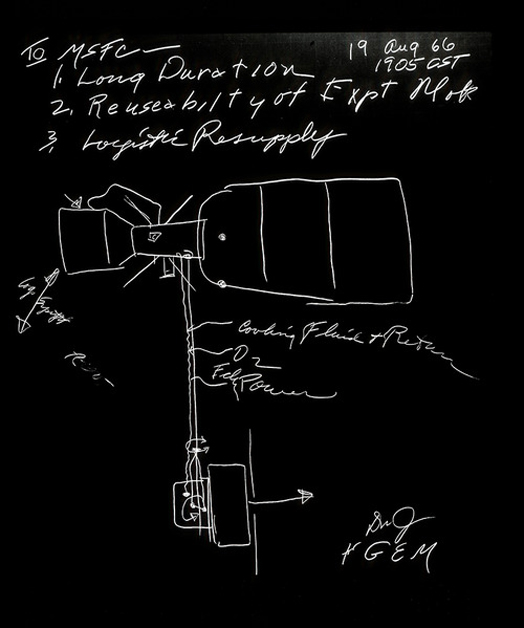 To MSFC
19 Aug 66
1905 CST
1. Long Duration
2. Reuseabilty of Expt Mod
3. Logistic Resupply
Cooling Fluid + Return
O2
Power
GEM